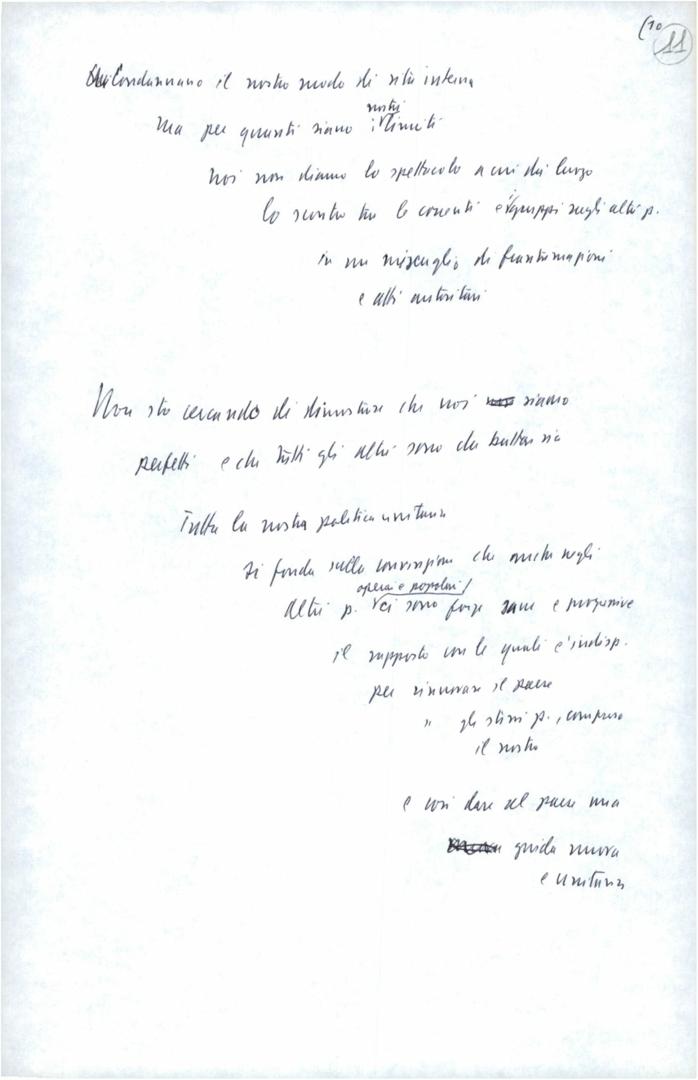 (10
11
Condannano il nostro modo di vita interna
nostri
Ma per quanti siano i limiti
Noi non diamo lo spettacolo a cui dà luogo
lo scontro tra le correnti e i gruppi negli altri p.
in un miscuglio di frantumazioni
e atti autoritari
Non sto cercando di dimostrare che noi siamo
perfetti e che tutti gli altri sono da buttar via
Tutta la nostra politica unitaria
si fonda sulla convinzione che anche negli
operai e popolari
altri p. vi sono forze sane e progressive
il rapporto con le quali è indisp.
per rinnovare il paese
" gli stessi p., compreso
il nostro
e così dare al paese una
guida nuova
e unitaria